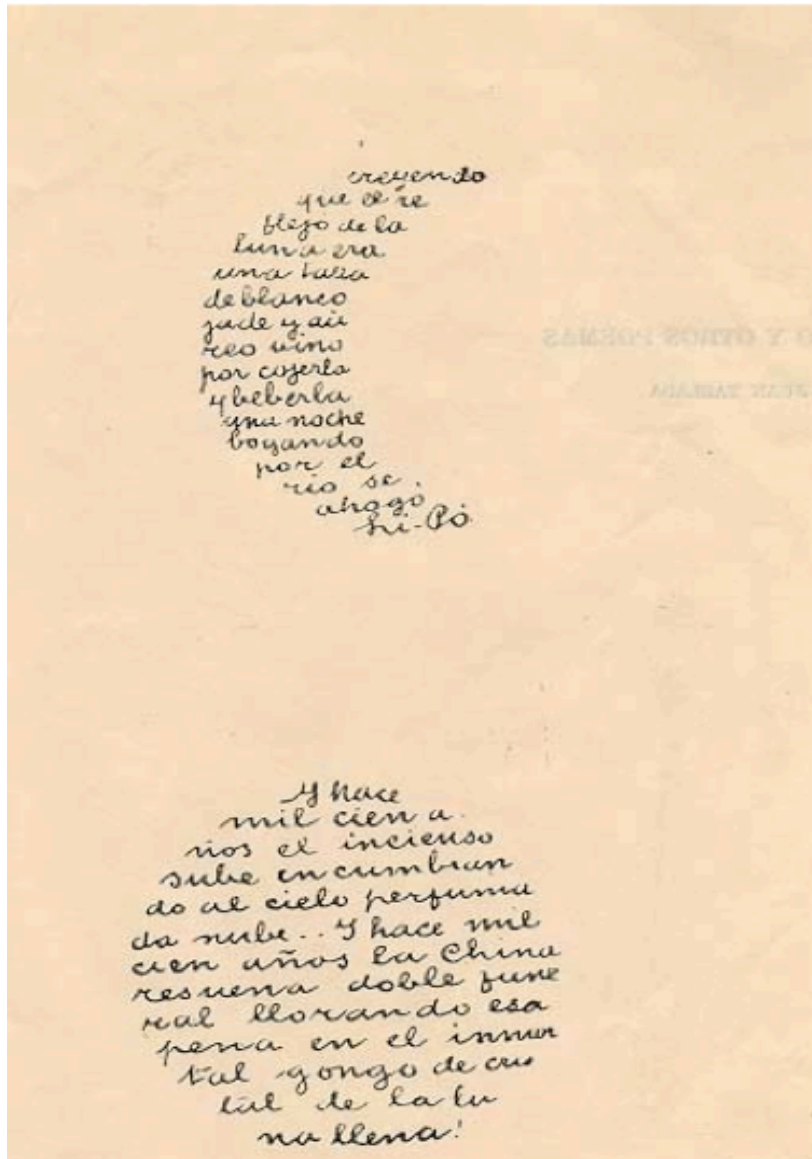 creyendo
que el re
flejo de la
luna era
una taza
de blanco
jade y áu
reo vino
por cojerla
y beberla
una noche
bogando
por el
río se
ahogó
Li-Pó
O Y OTROS POEMAS
JUAN TABLADA
Y hace
mil cien a
ños el incienso
sube encumbran
do al cielo perfuma
da nube.. Y hace mil
cien años la China
resuena doble fune
ral llorando esa
pena en el inmor
tal gongo de cris
tal de la lu
na llena!